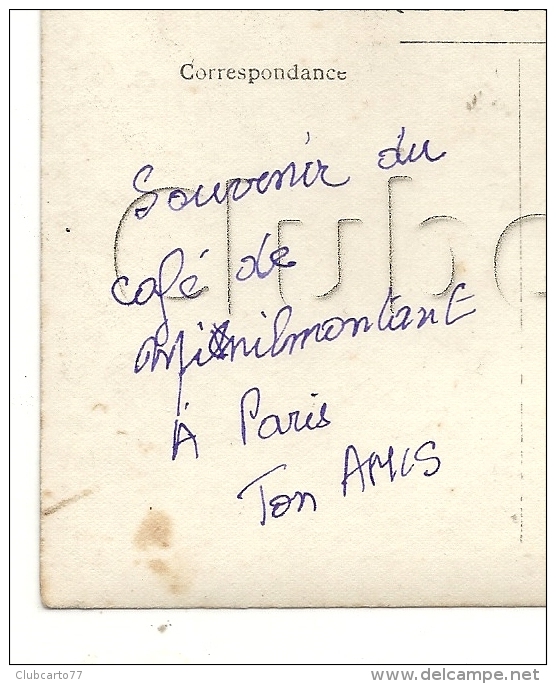 Correspondance
Souvenir du
café de
Ménilmontant
À Paris
Ton AMIS
Clubc
Clubcarto77
www.delcampe.net